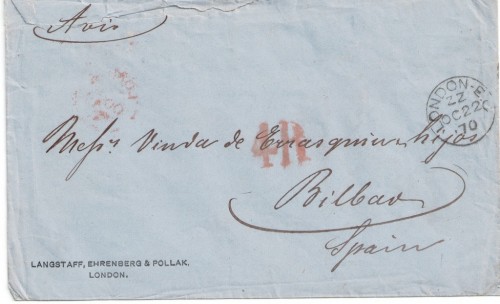 Avis
LONDON-E.C
ZZ
OC 22
70
4R
Messrs Viuda de Errasquin e hijos
Bilbao
Spain
LANGSTAFF, EHRENBERG & POLLAK.
LONDON.